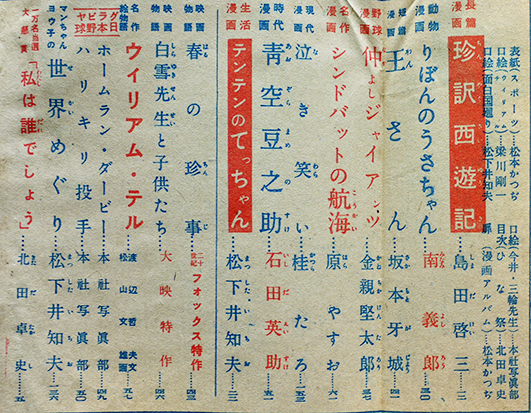 表紙(スポーツ)…松本かつぢ
口絵(ウィリアム・テル)…梁川剛一
口絵(面白国廻り)…松下井知夫
口絵 今井・三輪先生…本社写眞部
目次(ひな祭)…北田卓史
扉(漫画アルバム)…松本かつぢ
長篇漫画 珍訳西遊記……島田啓三…三
動物漫画 りぼんのうさちゃん……南義郎…五〇
短篇漫画 王さん……坂本牙城
野球漫画 仲よしジャイアンツ……金親堅太郎
名作漫画 シンドバットの航海……原やすお
現代漫画 泣き笑い……桂たろう
時代漫画 青空豆之助……石田英助
生活漫画 テンテンのてっちゃん……松下井知夫
映画物語 春の珍事……二十世紀フォックス特作
映画物語 白雪先生と子供たち……大映特作
絵物語 ウィリアム・テル……渡辺哲夫文 松山文雄画
グラビヤ 日本野球 ホームラン・ダービー…本社写眞部
ハリキリ投手…本社写眞部
マンちゃんヨウ子の 世界めぐり…松下井知夫
一万名当選大懸賞 「私は誰でしょう」…北田卓史